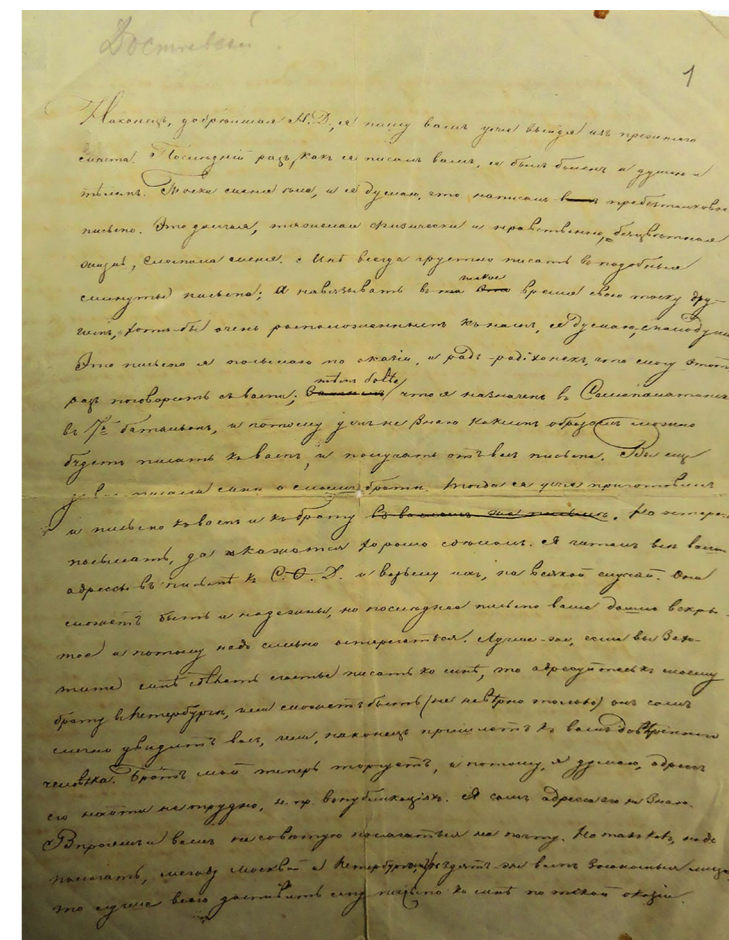 Достоевский.
1
Наконецъ, добрѣйшая Н.Д., я пишу вамъ уже выйдя изъ прежняго
мѣста. Послѣдній разъ, какъ я писалъ вамъ, я былъ боленъ и душою и
тѣломъ. Тоска меня ѣла, и я думаю, что написалъ пребезтолковое
письмо. Эта долгая, тяжелая физически и нравственно, безцвѣтная
жизнь, сломила меня. Мнѣ всегда грустно писать въ подобныя
минуты письма; а навязывать въ такое время свою тоску дру-
гимъ, хотя бы очень расположеннымъ къ намъ, я думаю, малодушіе
Это письмо я посылаю по оказіи, и радъ-радёхонекъ, что могу этотъ
разъ поговорить съ вами; тѣмъ болѣе, что я назначенъ въ Семипалатинскъ
въ 7й баталіонъ, и потому ужъ не знаю какимъ образомъ можно
будетъ писать къ вамъ, и получать отъ васъ письма. Вы еще
писали мнѣ о моемъ братѣ. Тогда я уже приготовилъ
и письмо къ вамъ и къ брату Но
посылать, да и кажется хорошо сдѣлалъ. Я читалъ всѣ ваши
адрессы въ письмѣ къ С.О.Д. и возьму ихъ, на всякой случай. Они
можетъ быть и надежны, но послѣднее письмо ваше дошло вскры-
тое и потому надо сильно остерегаться. Лучше-же, если вы захо-
тите мнѣ сдѣлать счастье писать ко мнѣ, то адресуйтесь къ моему
брату въ Петербургъ, чѣмъ можетъ быть (не навѣрно только) онъ самъ
лично увидитъ васъ, или, наконецъ пришлетъ къ вамъ довѣреннаго
человѣка. Братъ мой теперь торгуетъ, а потому, я думаю, адрессъ
его найти не трудно, н. пр. въ публикаціяхъ. Я самъ адресса его не знаю.
Впрочемъ и вамъ не совѣтую полагаться на почту. Но такъ какъ, надо
полагать, между Москвой и Петербургомъ ѣздятъ-же вамъ знакомыя лица
то лучше всего доставить ему письмо ко мнѣ по такой оказіи.